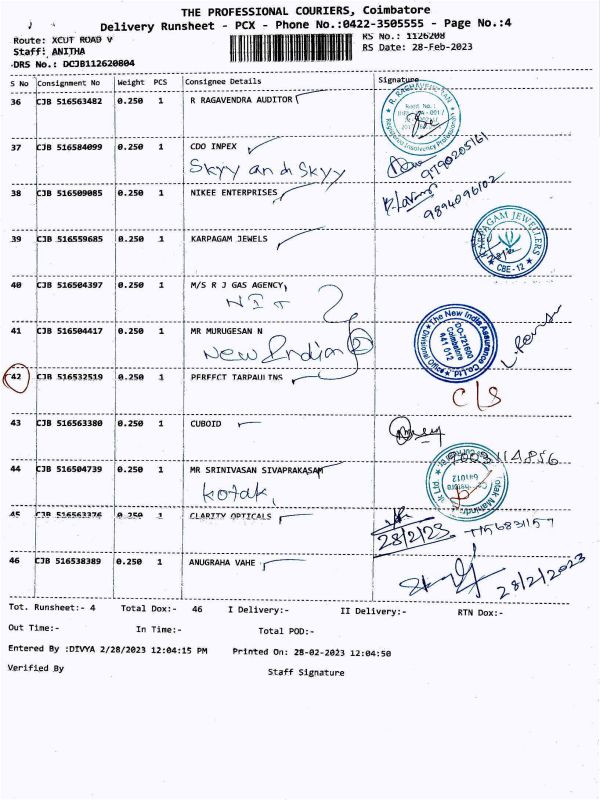 THE PROFESSIONAL COURIERS, Coimbatore
Delivery Runsheet - PCX - Phone No.:0422-3505555 - Page No.:4
Route: XCUT ROAD V
RS No.: 1126208
Staff: ANITHA
RS Date: 28-Feb-2023
DRS No.: DCJB112620804
S No Consignment No Weight PCS Consignee Details Signature
36 CJB 516563482 0.250 1 R RAGAVENDRA AUDITOR
37 CJB 516584099 0.250 1 CDO INPEX
Skyy and Skyy 9790205161
38 CJB 516509085 0.250 1 NIKEE ENTERPRISES
9894096102
39 CJB 516559685 0.250 1 KARPAGAM JEWELS
KARPAGAM JEWELLERS
CBE-12
40 CJB 516504397 0.250 1 M/S R J GAS AGENCY,
41 CJB 516504417 0.250 1 MR MURUGESAN N
New India 2
The New India Assurance Co Ltd
DO-721600
Coimbatore
641 012
Divisional Office
42 CJB 516532519 0.250 1 PERFECT TARPAULINS
C/S
43 CJB 516563380 0.250 1 CUBOID
9003114856
44 CJB 516504739 0.250 1 MR SRINIVASAN SIVAPRAKASAM
Kotak,
45 CJB 516563376 0.250 1 CLARITY OPTICALS
28/2/23
46 CJB 516538389 0.250 1 ANUGRAHA VAHE
28/2/2023
Tot. Runsheet:- 4 Total Dox:- 46 I Delivery:- II Delivery:- RTN Dox:-
Out Time:- In Time:- Total POD:-
Entered By :DIVYA 2/28/2023 12:04:15 PM Printed On: 28-02-2023 12:04:50
Verified By Staff Signature